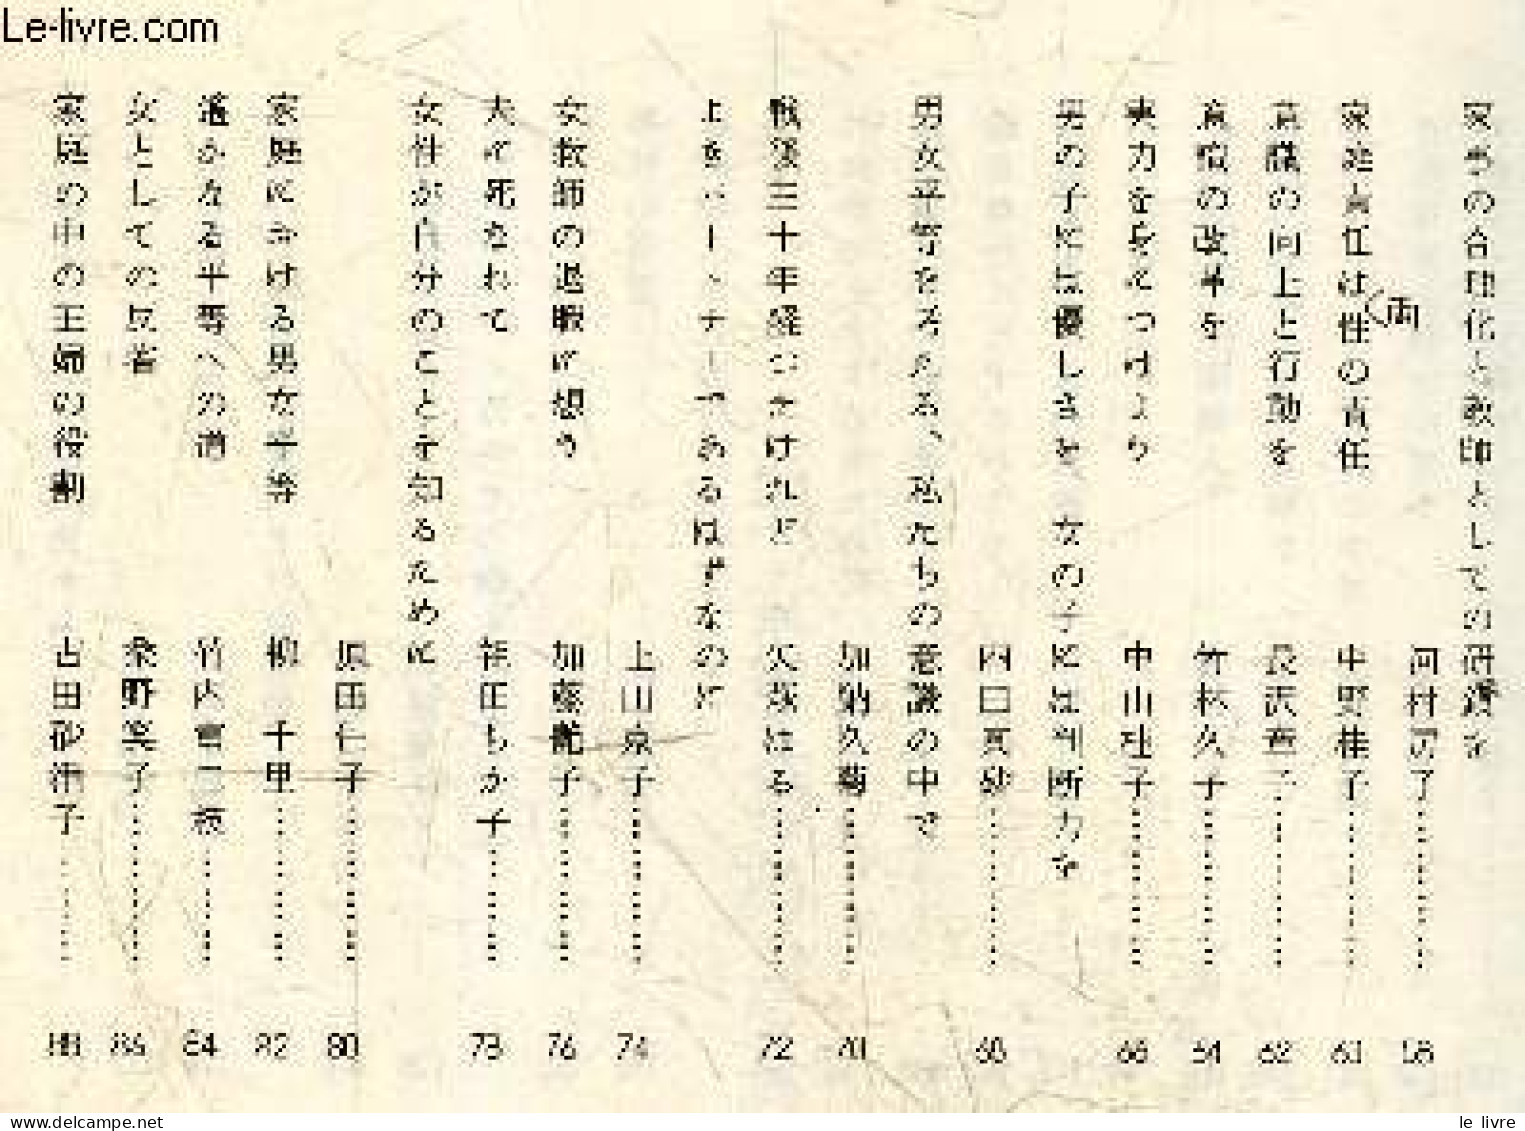 Le-livre.com
家事の合理化と教師としての研鑽を
河村房子…………58
家庭責任は両性の責任
中野桂子…………60
意識の向上と行動を
長沢 子…………62
意識の改革を
若林久子…………64
実力を身につけよう
中山 子…………66
男の子には優しさを、女の子には判断力を
四日真砂…………68
男女平等をさえぎる、私たちの意識の中で
加納久菊…………70
戦後三十年経つ けれど
矢 はる…………72
よきパートナーであるはずなのに
上山泉子…………74
女教師の退職に想う
加藤艶子…………76
夫に死なれて
田ちか子………78
女性が自分のことを知るために
原田仁子…………80
家庭における男女平等
柳 千里…………82
遥かなる平等への道
竹内 ………84
女としての反省
桑野 子…………86
家庭の中の主婦の役割
古田 子………88
delcampe.net
le_livre